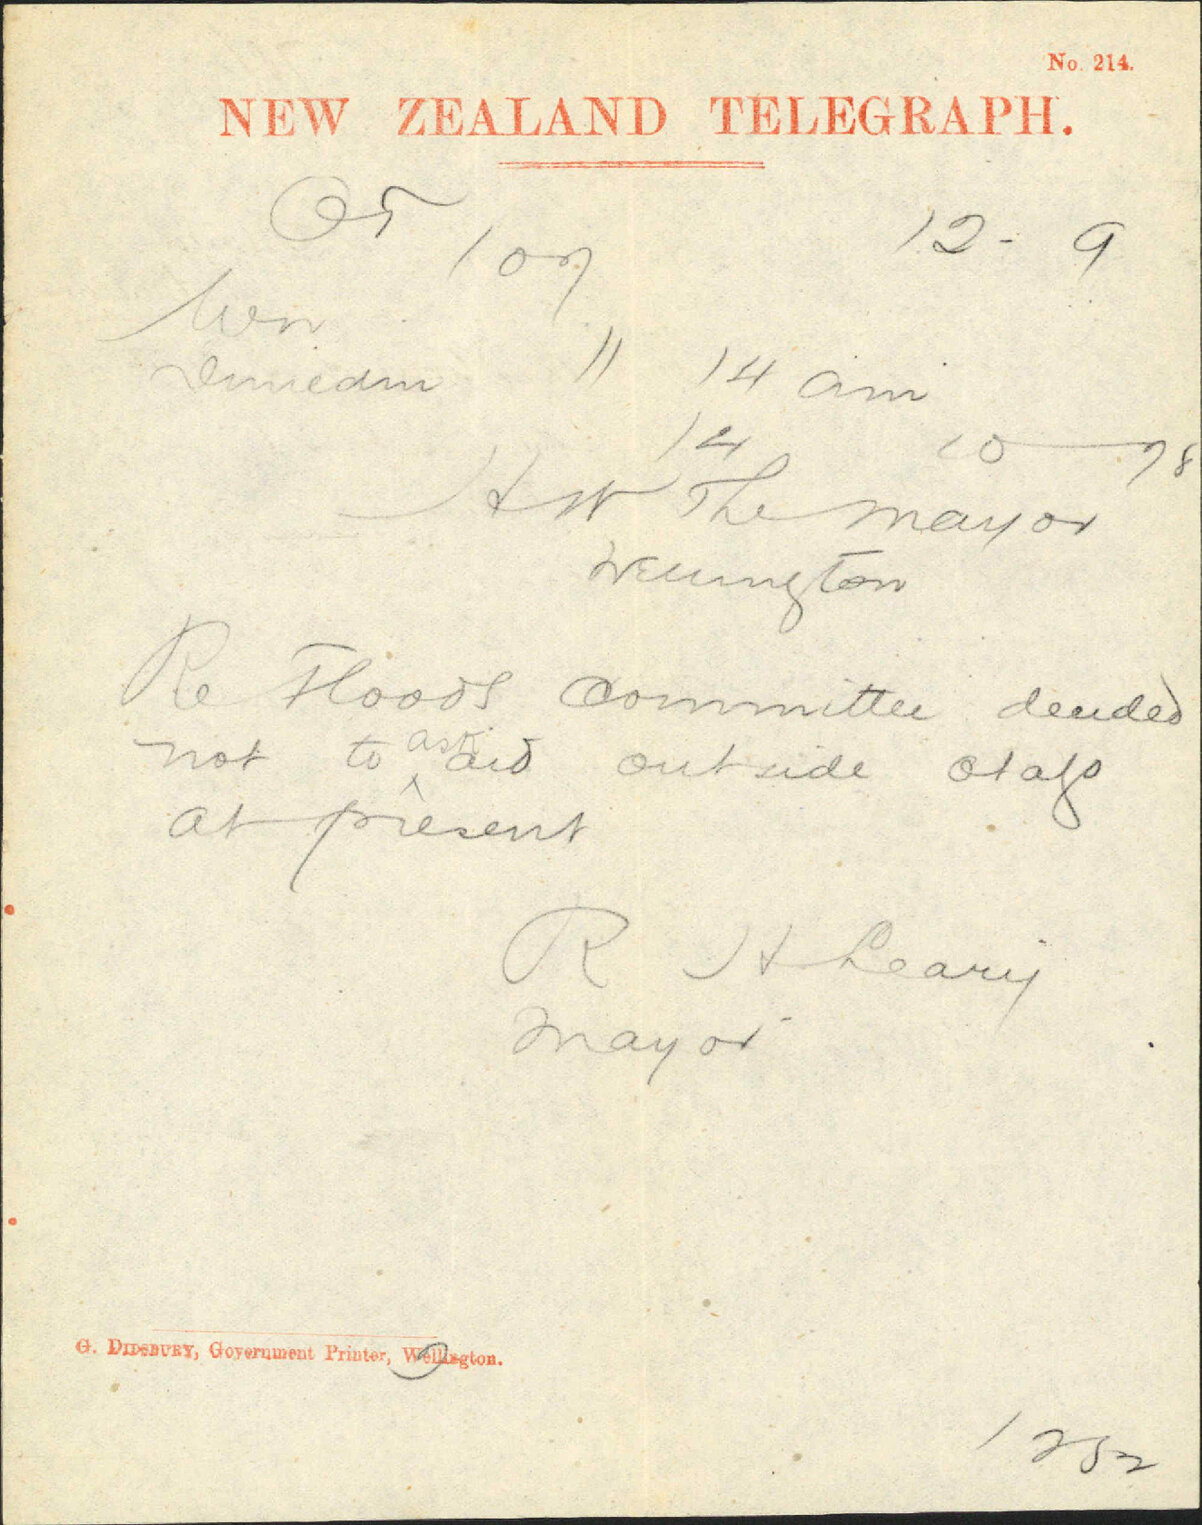 No. 214.
NEW ZEALAND TELEGRAPH.
107 12 - 9
Wen
Dunedin 11 14 am
14 10 78
HW The Mayor
Wellington
Re Floods Committee decided
not to ask aid outside Otago
at present
R H Leary
Mayor
G. DIDSBURY, Government Printer, Wellington.
1252